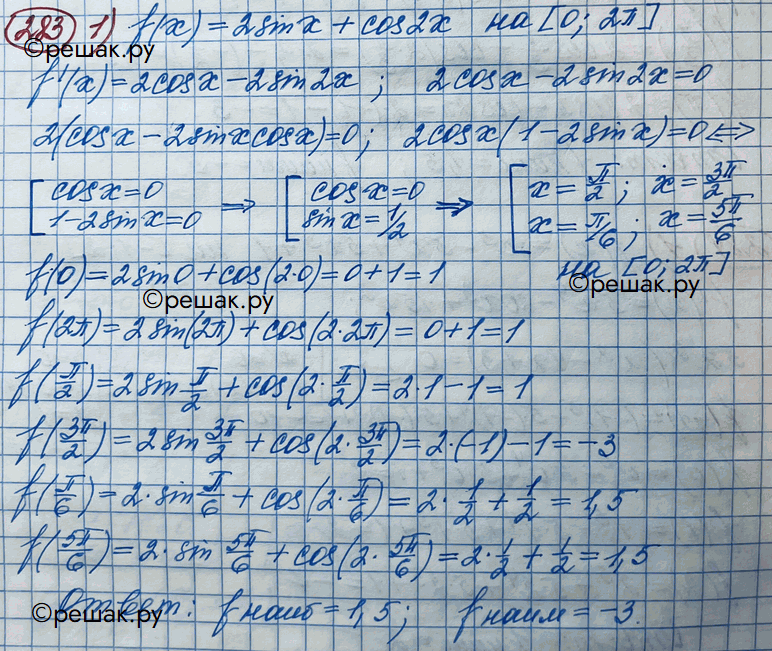 283 1) f(x) = 2sinx + cos2x на [0; 2π]
©решак.ру
f'(x) = 2cosx − 2sin2x ; 2cosx − 2sin2x = 0
2(cosx − 2sinxcosx) = 0; 2cosx(1 − 2sinx) = 0 ⟺
[ cosx = 0 ⟹ [ cosx = 0 ⟹ [ x = π/2 ; x = 3π/2
1 − 2sinx = 0 sinx = 1/2 x = π/6 ; x = 5π/6
f(0) = 2sin0 + cos(2·0) = 0 + 1 = 1 на [0; 2π]
©решак.ру ©решак.ру
f(2π) = 2sin(2π) + cos(2·2π) = 0 + 1 = 1
f(π/2) = 2sin π/2 + cos(2·π/2) = 2·1 − 1 = 1
f(3π/2) = 2sin 3π/2 + cos(2·3π/2) = 2·(−1) − 1 = −3
f(π/6) = 2·sin π/6 + cos(2·π/6) = 2·1/2 + 1/2 = 1,5
f(5π/6) = 2·sin 5π/6 + cos(2·5π/6) = 2·1/2 + 1/2 = 1,5
Ответ: f наиб = 1,5; f наим = −3.
©решак.ру